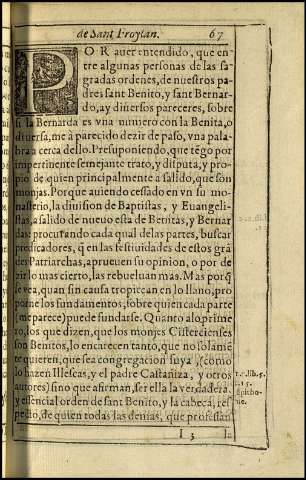 de Sant Froylan. 67
POR auer entendido, que en
tre algunas personas de las sa
gradas ordenes, de nuestros pa
dres sant Benito, y sant Bernar
do, ay diuersos pareceres, sobre
si la Bernarda es vna mismo con la Benita, o
diuersa, me à parecido dezir de paso, vna pala
bra a cerca dello. Presuponiendo, que tẽgo por
impertinente semejante trato, y disputa, y pro-
pio de quien principalmente a salido, que son
monjas. Porque auiendo cessado en vn su mo-
nasterio, la diuision de Baptistas, y Euangeli-
stas, a salido de nueuo esta de Benitas, y Bernar
das: procurando cada qual de las partes, buscar
predicadores, q̃ en las festiuidades de estos grã
des Patriarchas, aprueuen su opinion, o por de
zir lo mas cierto, las rebueluan mas. Mas porq̃
se vea, quan sin causa tropiecan en lo llano, pro
porne los fundamentos, sobre quien cada parte
(me parece) puede fundarse. Quanto a lo prime
ro, los que dizen, que los monjes Cistercienses
son Benitos, lo encarecen tanto, que no solamẽ
te quieren, que sea congregacion suya, (como
lo hazen Illescas, y el padre Castañiza, y otros
autores) sino que afirman, ser ella la verdadera,
y essencial orden de sant Benito, y la cabeça, res
pecto, de quien todas las demas, que professan
I 3 l.
1. lib. 5.
c. 15.